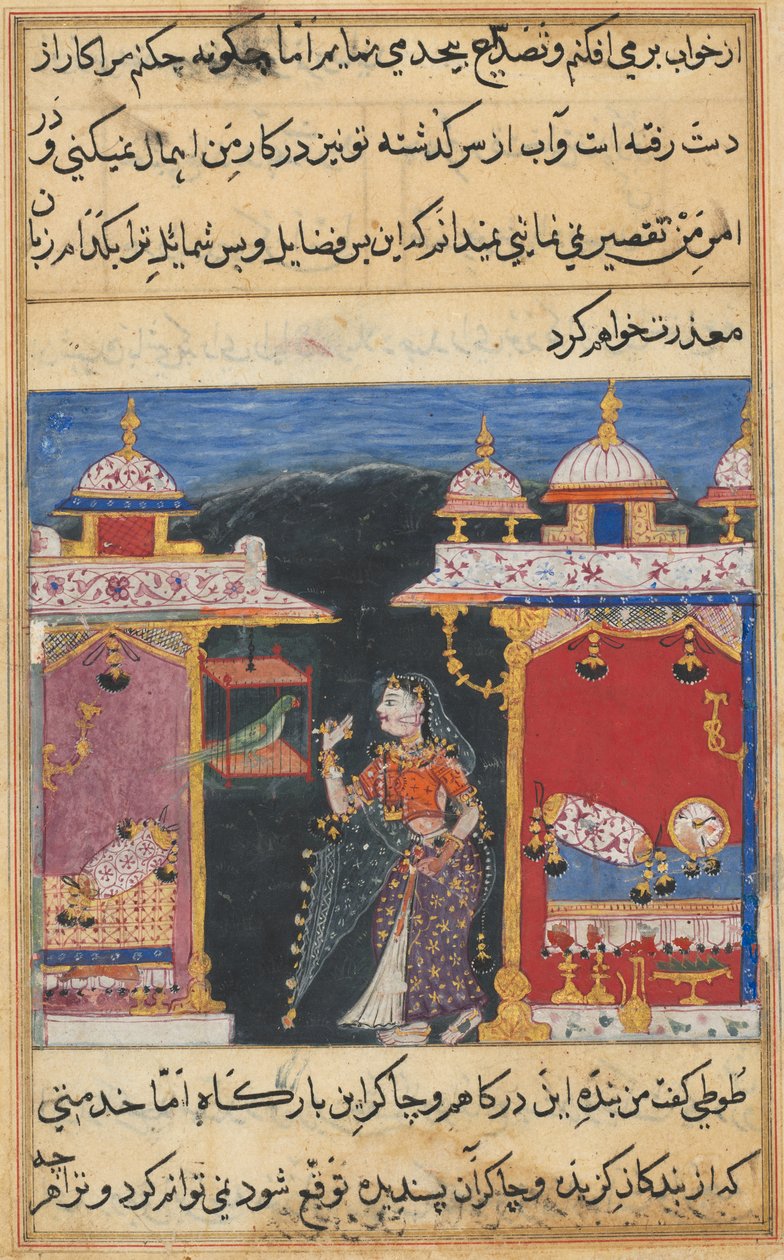 از خواب بر می افکنم و تَصَدیّع بیحد می نمایم اَمّا چکونه چکنم مرا کار از
دستَ رفته است وآب از سر کذشته تو نیز در کار مَن اهمال نمیکنی وَ دَر
امرِ مَنْ تقصیر نمی نمائی نمیدانم که این بس فضایل و بس شمائلِ ترا بکَدَام زبان
معذرت خواهم کرد
طُوطی کفت من بندهِ اینَ درکاهم و چاکرِ این بارکَاه اَمّا خدمتی
که از بندکانِ کزیدَه و چاکرَانِ پسندیده تَوقّع شود نمی توانم کرد و ترا هر چه